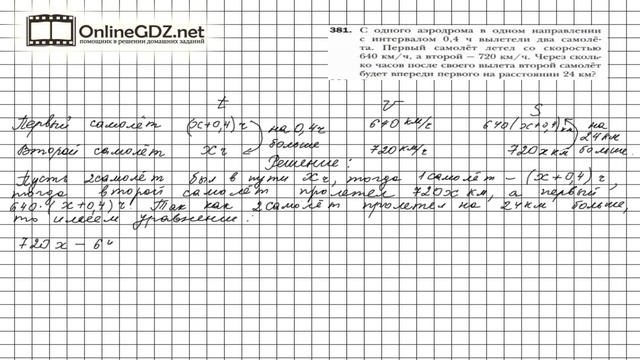 OnlineGDZ.net
помощник в решении домашних заданий
381. С одного аэродрома в одном направлении
с интервалом 0,4 ч вылетели два самолё-
та. Первый самолёт летел со скоростью
640 км/ч, а второй — 720 км/ч. Через сколь-
ко часов после своего вылета второй самолёт
будет впереди первого на расстоянии 24 км?
t v S
Первый самолёт (x+0,4) ч на 0,4ч больше 640 км/ч 640(x+0,4) км на 24км больше.
Второй самолёт xч 720 км/ч 720x км
Решение:
Пусть 2самолёт был в пути xч, тогда 1самолёт – (x+0,4) ч,
тогда второй самолёт пролетел 720x км, а первый
640·(x+0,4) ч Так как 2самолёт пролетел на 24км больше,
то имеем уравнение:
720x – 6